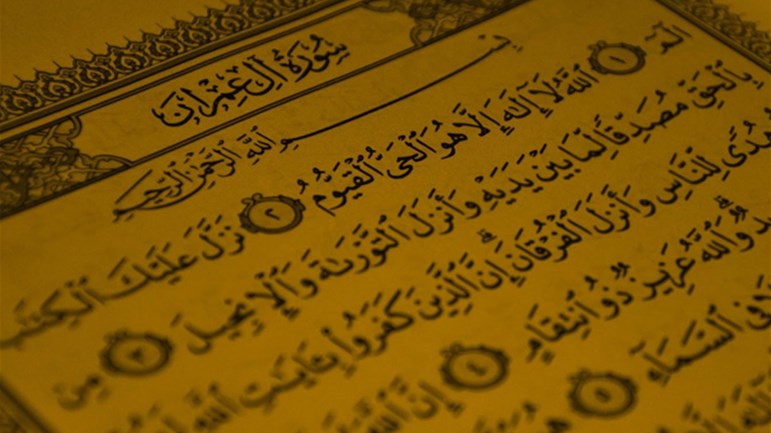 سُورَةُ آلِ عِمْرَانَ
بِسْمِ ٱللَّهِ ٱلرَّحْمَٰنِ ٱلرَّحِيمِ
الٓمٓ ١ ٱللَّهُ لَآ إِلَٰهَ إِلَّا هُوَ ٱلْحَىُّ ٱلْقَيُّومُ ٢ نَزَّلَ عَلَيْكَ ٱلْكِتَٰبَ
بِٱلْحَقِّ مُصَدِّقًا لِّمَا بَيْنَ يَدَيْهِ وَأَنزَلَ ٱلتَّوْرَىٰةَ وَٱلْإِنجِيلَ ٣ مِن
هُدًى لِّلنَّاسِ وَأَنزَلَ ٱلْفُرْقَانَ ۗ إِنَّ ٱلَّذِينَ كَفَرُوا۟ بِـَٔايَٰتِ ٱللَّهِ
وَٱللَّهُ عَزِيزٌ ذُو ٱنتِقَامٍ ٤ إِنَّ ٱللَّهَ
فِى ٱلسَّمَآءِ ٥